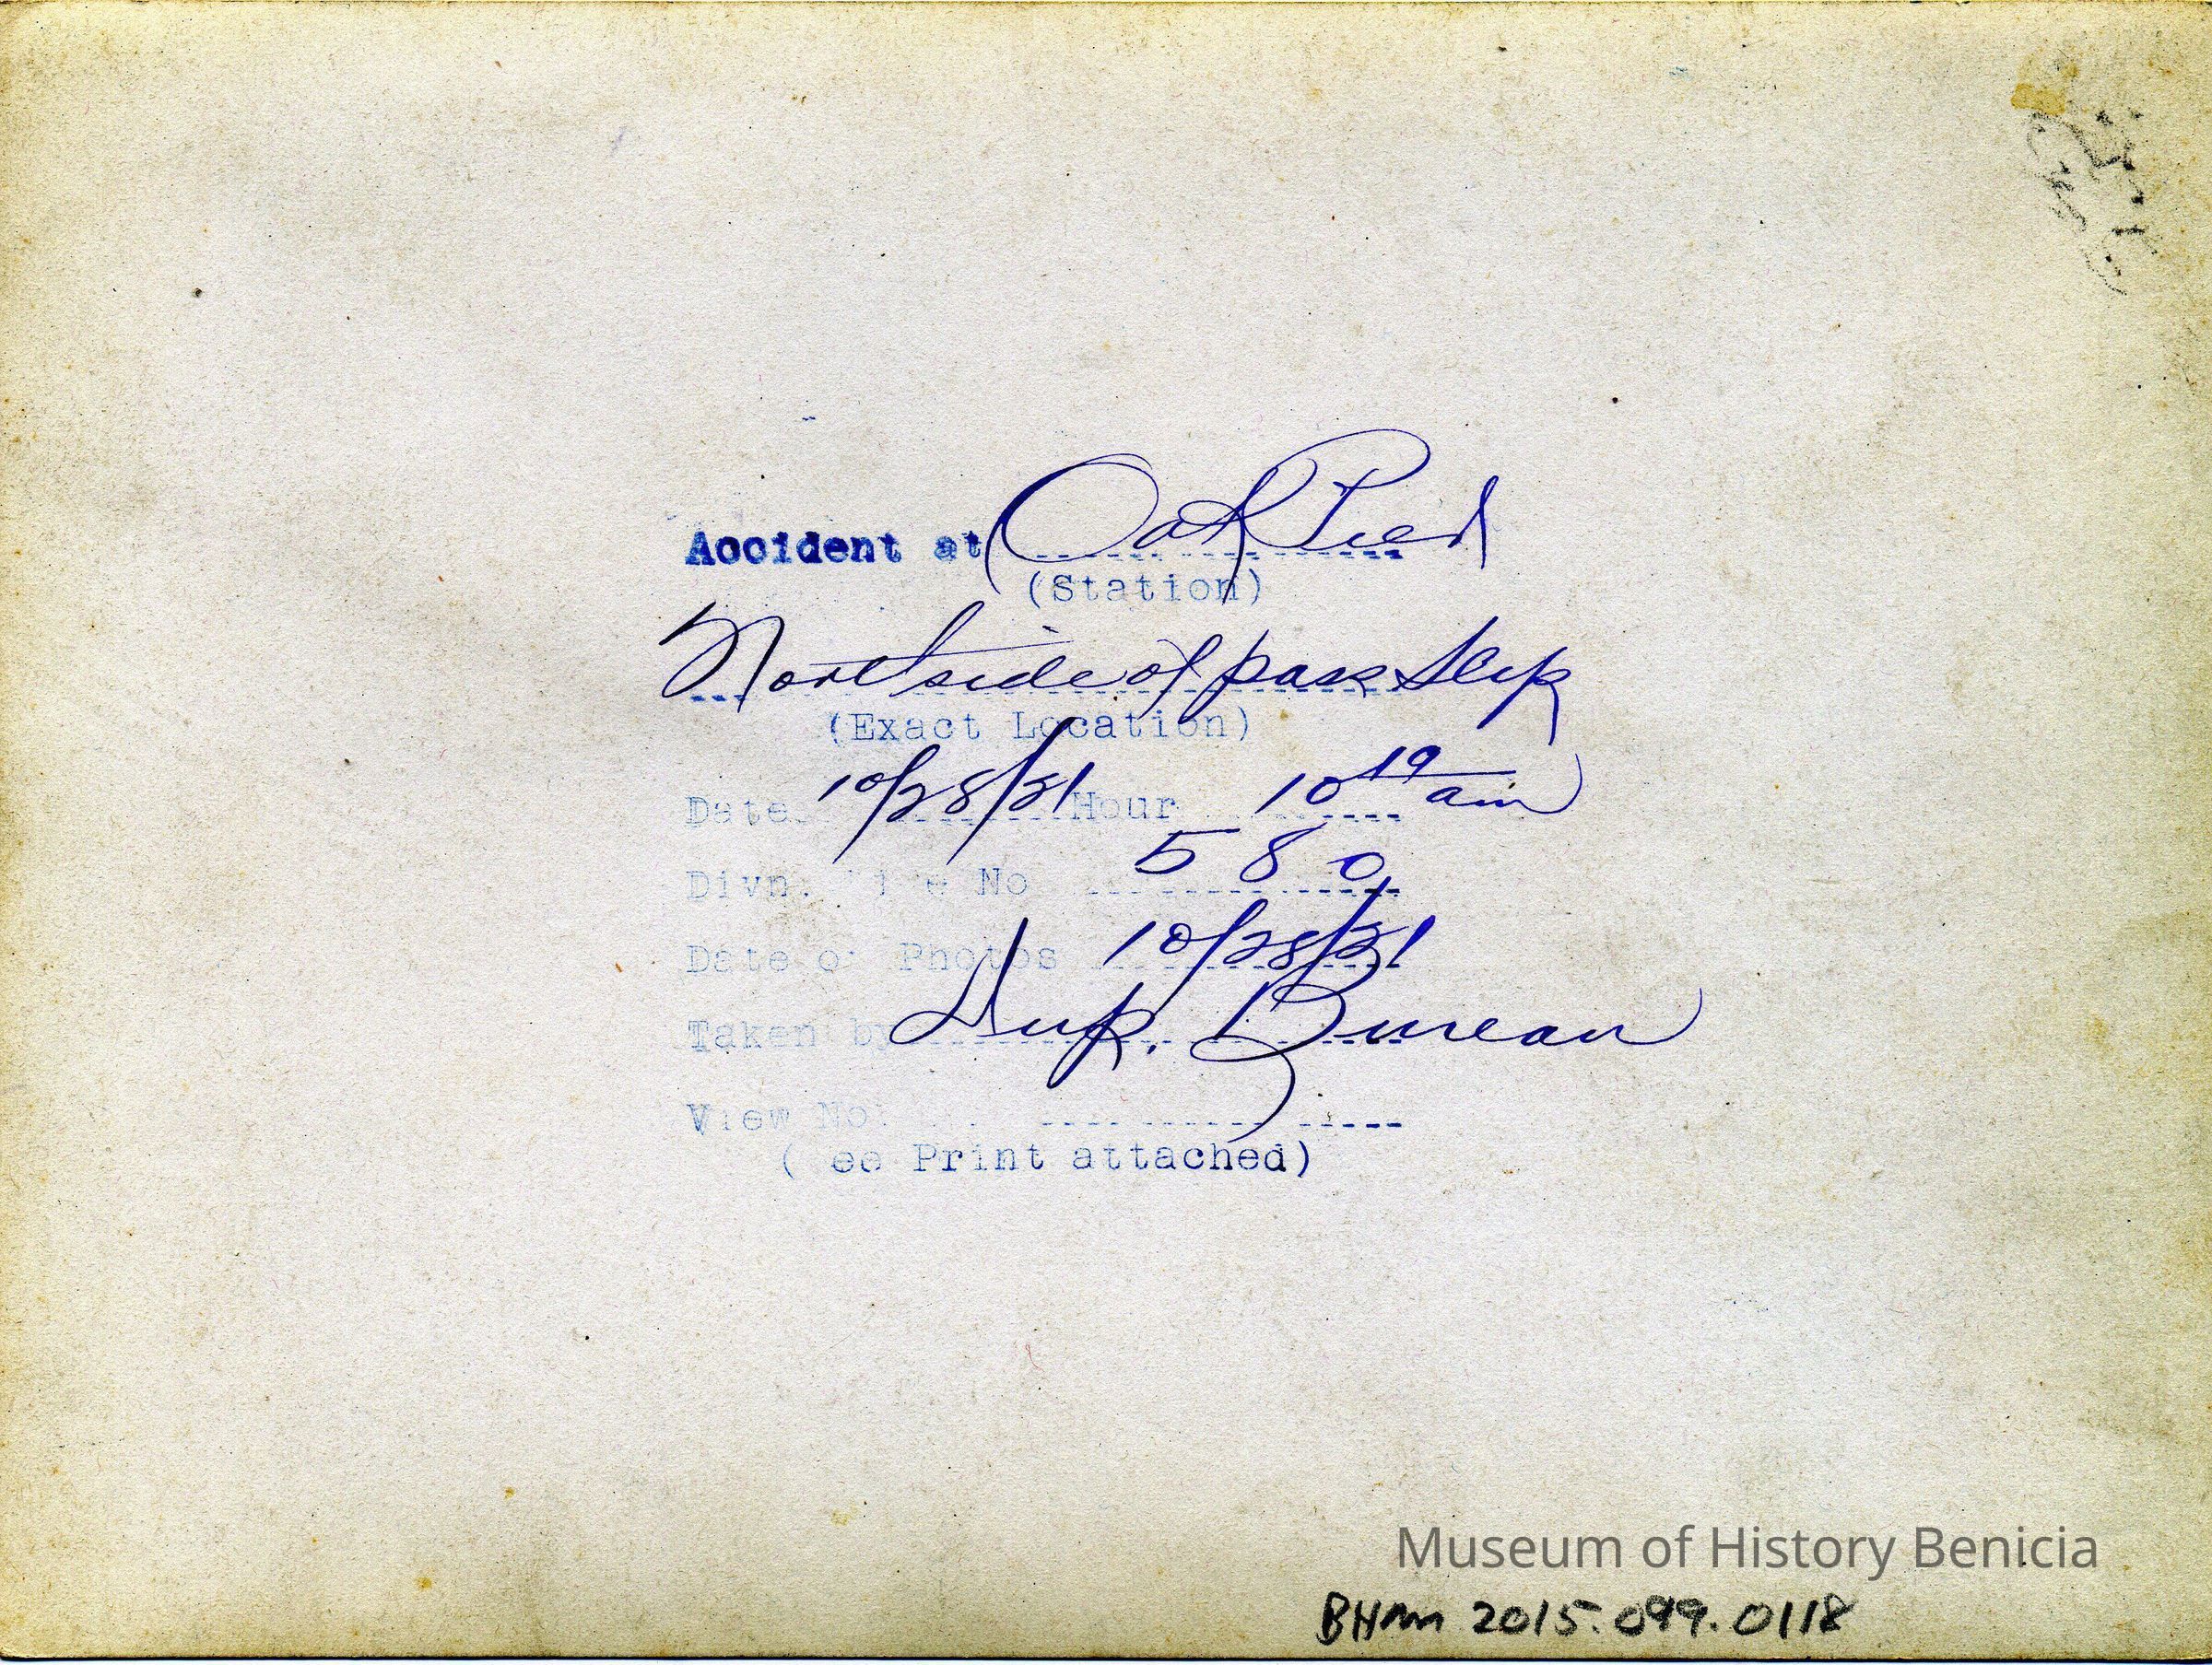 Accident at Oak Pier
(Station)
North side of pass slip
(Exact Location)
Date 10/28/31 Hour 10 19 am
Divn. File No 580
Date of Photos 10/28/31
Taken by Sup. Bureau
View No.
( ee Print attached)
Museum of History Benicia
BHM 2015.099.0118